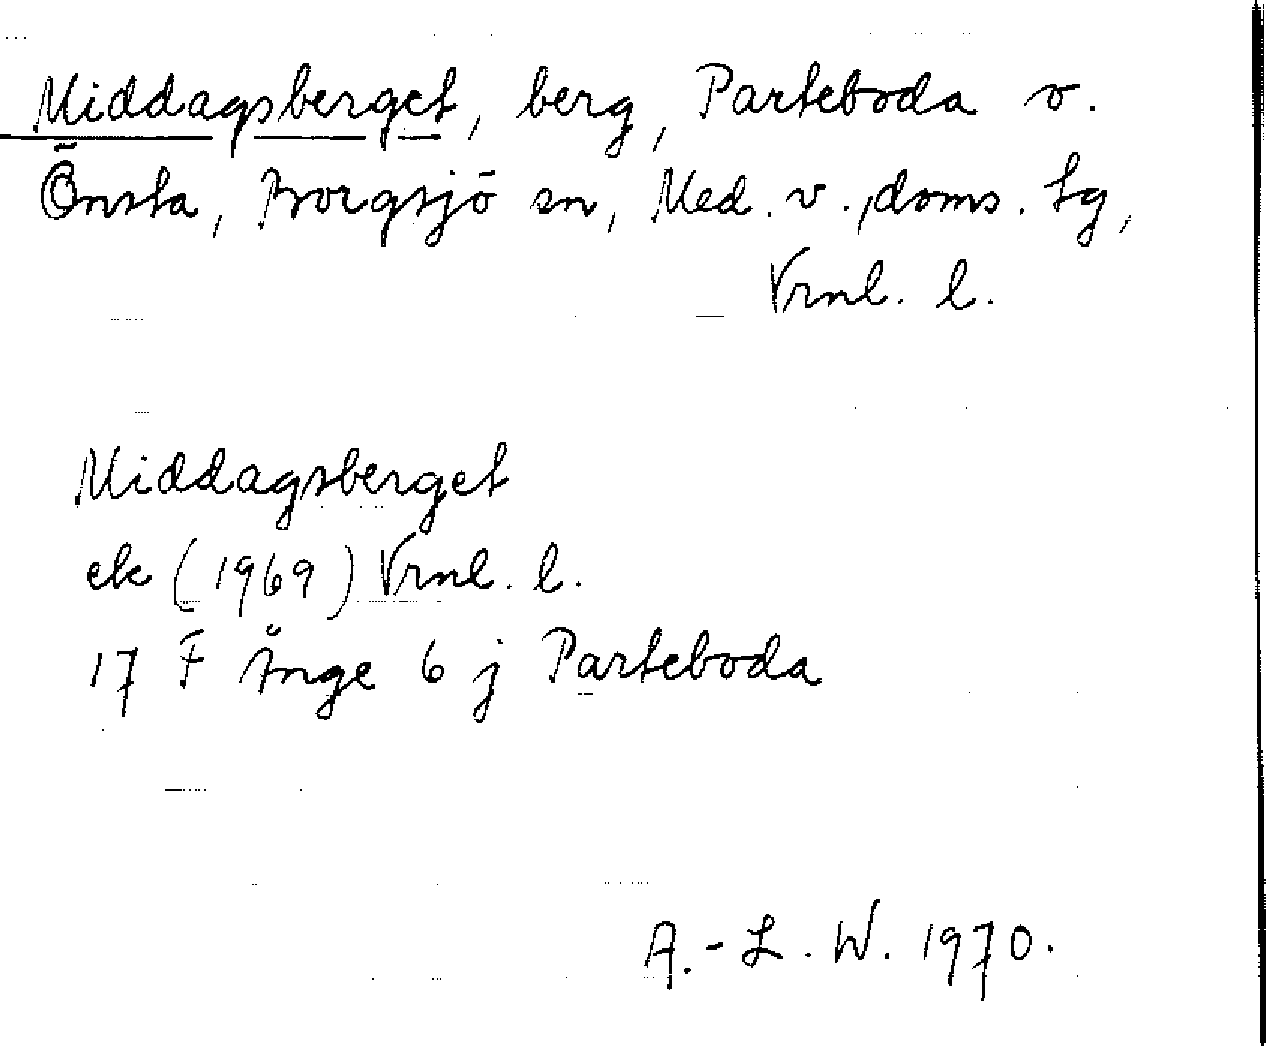 Middagsberget, berg, Parteboda o.
Önsta, Borgsjö sn, Med. v., doms. tg,
Vrnl. l.
Middagsberget
ek (1969) Vrnl. l.
17 F Ånge 6 j Parteboda
A.-L. W. 1970.